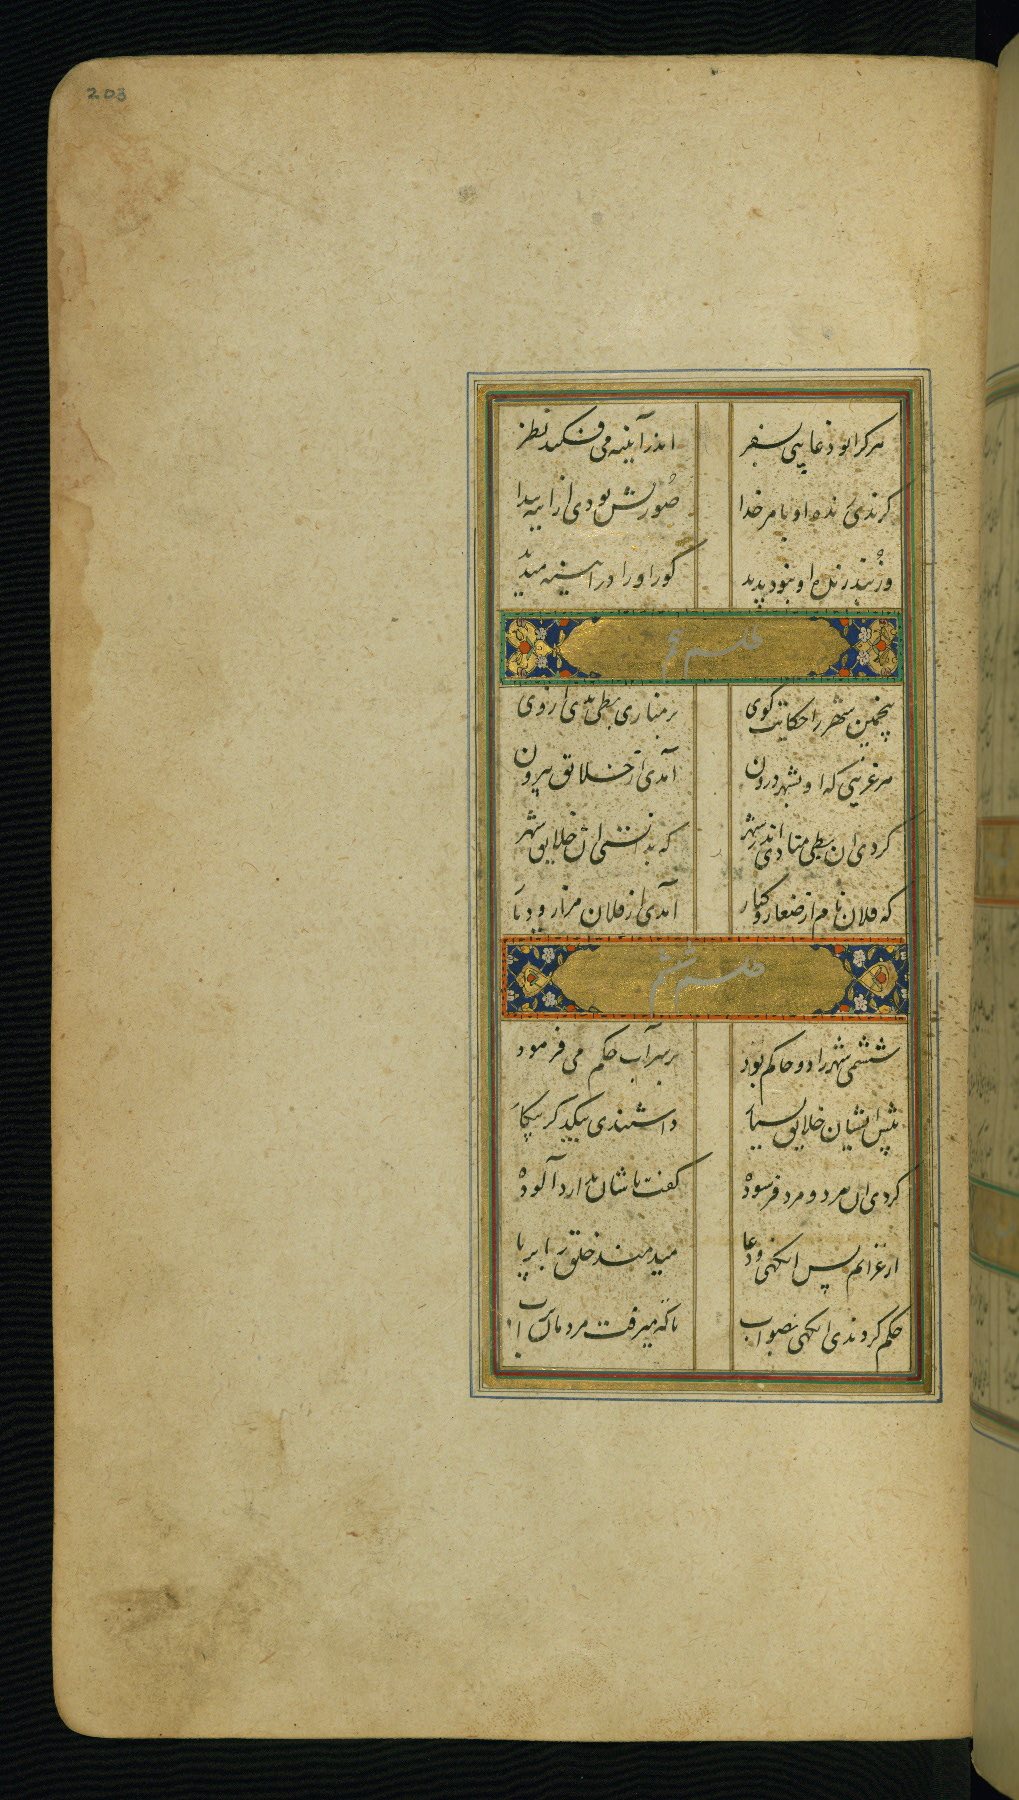 203
هر کرا بودغایبی بسفر
اندر آینه می فکند نظر
کر بدی زنده او بامر خدا
صورتش بودی از آینه پیدا
ور نبد زنده او نبود پدید
کو را در آینه میدید
طلسم
پنجمین شهر را حکایت کوی
بر مناری بطی بدی از روی
هر غریبی که او بشهر درون
آمدی از خلایق بیرون
کردی آن بط منادی اندر شهر
که بدانستی آن خلایق شهر
که فلان نام از صغار و کبار
آمدی از فلان مزار و دیار
طلسم ششم
ششمی شهر را دو حاکم بود
بر سر آب حکم می فرمود
پیش ایشان خلایق بسیار
داشتندی بیکدکر پیکار
کردی آن هر دو مرد فرسوده
کفت باشان بد ارد آلوده
از غزایم پس آنکهی و دعا
میدمیدند خلق را بر پا
حکم کردندی آنکهی بصواب
تا که میرفت مرد بر سر آب